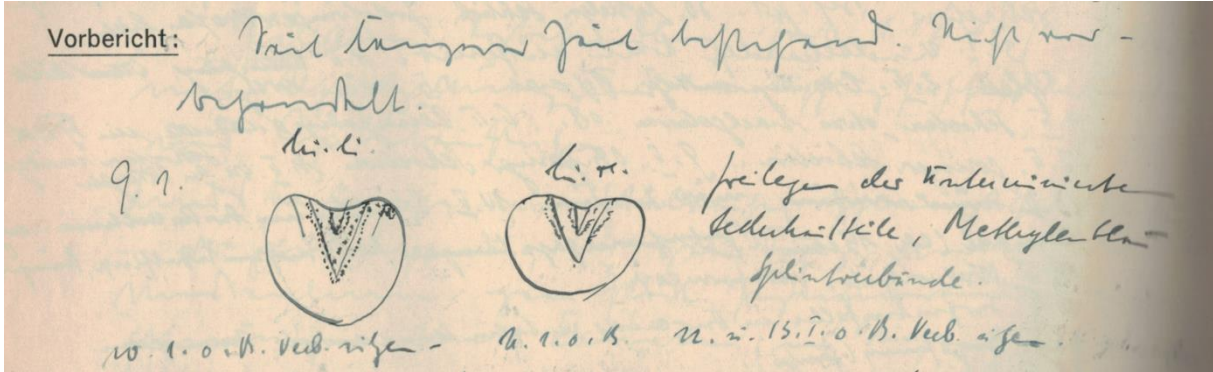 Vorbericht: Seit längerer Zeit bestehend. Nicht vor-
behandelt.
hi. li.
hi. re.
9. 1.
freilegen der Unterminierten
Lederhautteile, Methylenblau
Splintverbände.
10. 1. o. B. Verb.
11. 1. o. B.
12. u. 13. I. o. B. Verb.